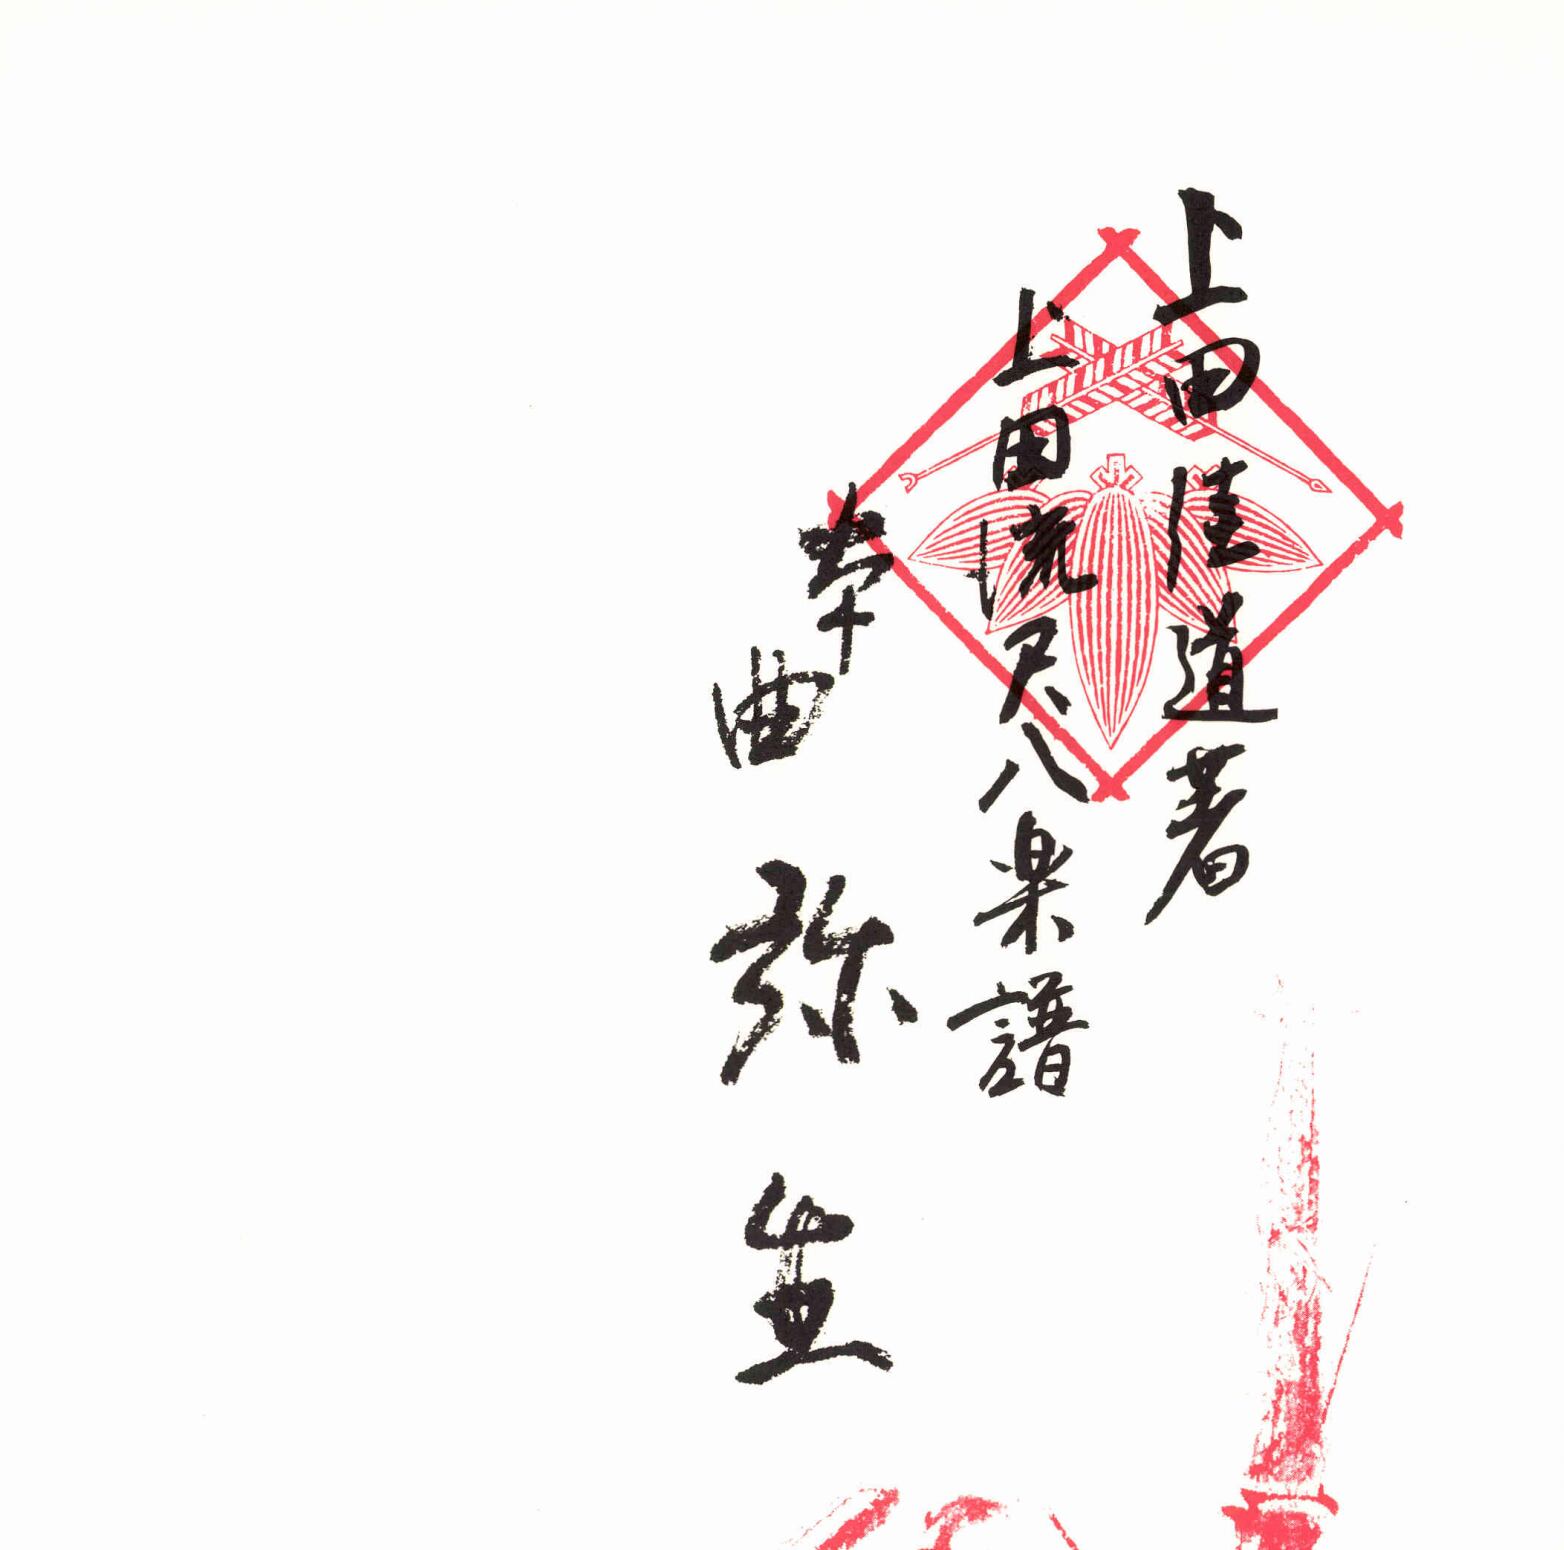 上田佳道著
上田流尺八楽譜
本曲
弥生